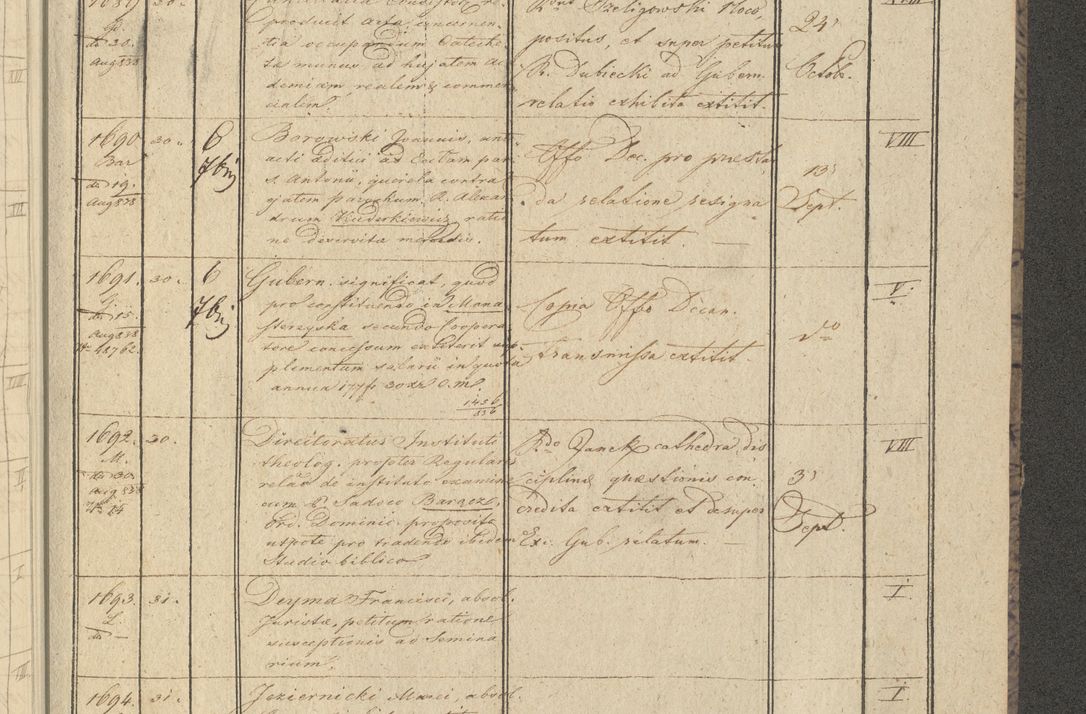 producit acta, concernen
tia occupandum Cateche
tæ munus ad hujatem Aca
demiam realem & commer
cialem.
de 30.
Aug 838
Rdus Szeligowski Loco
positus, et super petitum
R. Dubiecki ad Gubern.
relatio exhibita extitit.
24
Octob.
1690
Bar
de 19.
Aug 838
30.
6
7bris
Borowski Joannis, ant
acti æditui ad Eccliam par.
S. Antonii, querela contra
ejatem parochum R. Alexan
drum Kuderkiewicz ratio
ne deservita mercedis.
Offo Dec. pro præstan
da relatione resigna
tum extitit. —
13
Sept.
VIII
1691.
G.
de 15.
Aug 838
Nr 48762.
30.
6
7bris
Gubern. significat, quod
pro constituendo in Mona
sterzyska secundo Coopera
tore concessum extiterit sup
plementum salarii in quota
annua 177 f 30 xr C.M.
1456
836
Copia Offo Decan.
transmissa extitit.
do
V.
1692.
M.
de 30
Aug 838
Nr 14
30.
Directoratus Instituti
theolog. pro foter Regulari
relão de instituto examine
cum P. Sadoco Baracz,
Ord. Dominic. proposito
utpote pro tradendo ibidem
Studio biblico
Rdo Janek cathedra dis
ciplinæ quæstionis con
credita extitit et desuper
Exc. Gub. relatum. —
3
Sept.
VIII
1693.
L.
de —
31.
Deyma Francisci, absol.
Juristæ, petitum ratione
susceptionis ad Semina
rium.
I.
1694.
31.
Jeziernicki Marci, absol.
I.